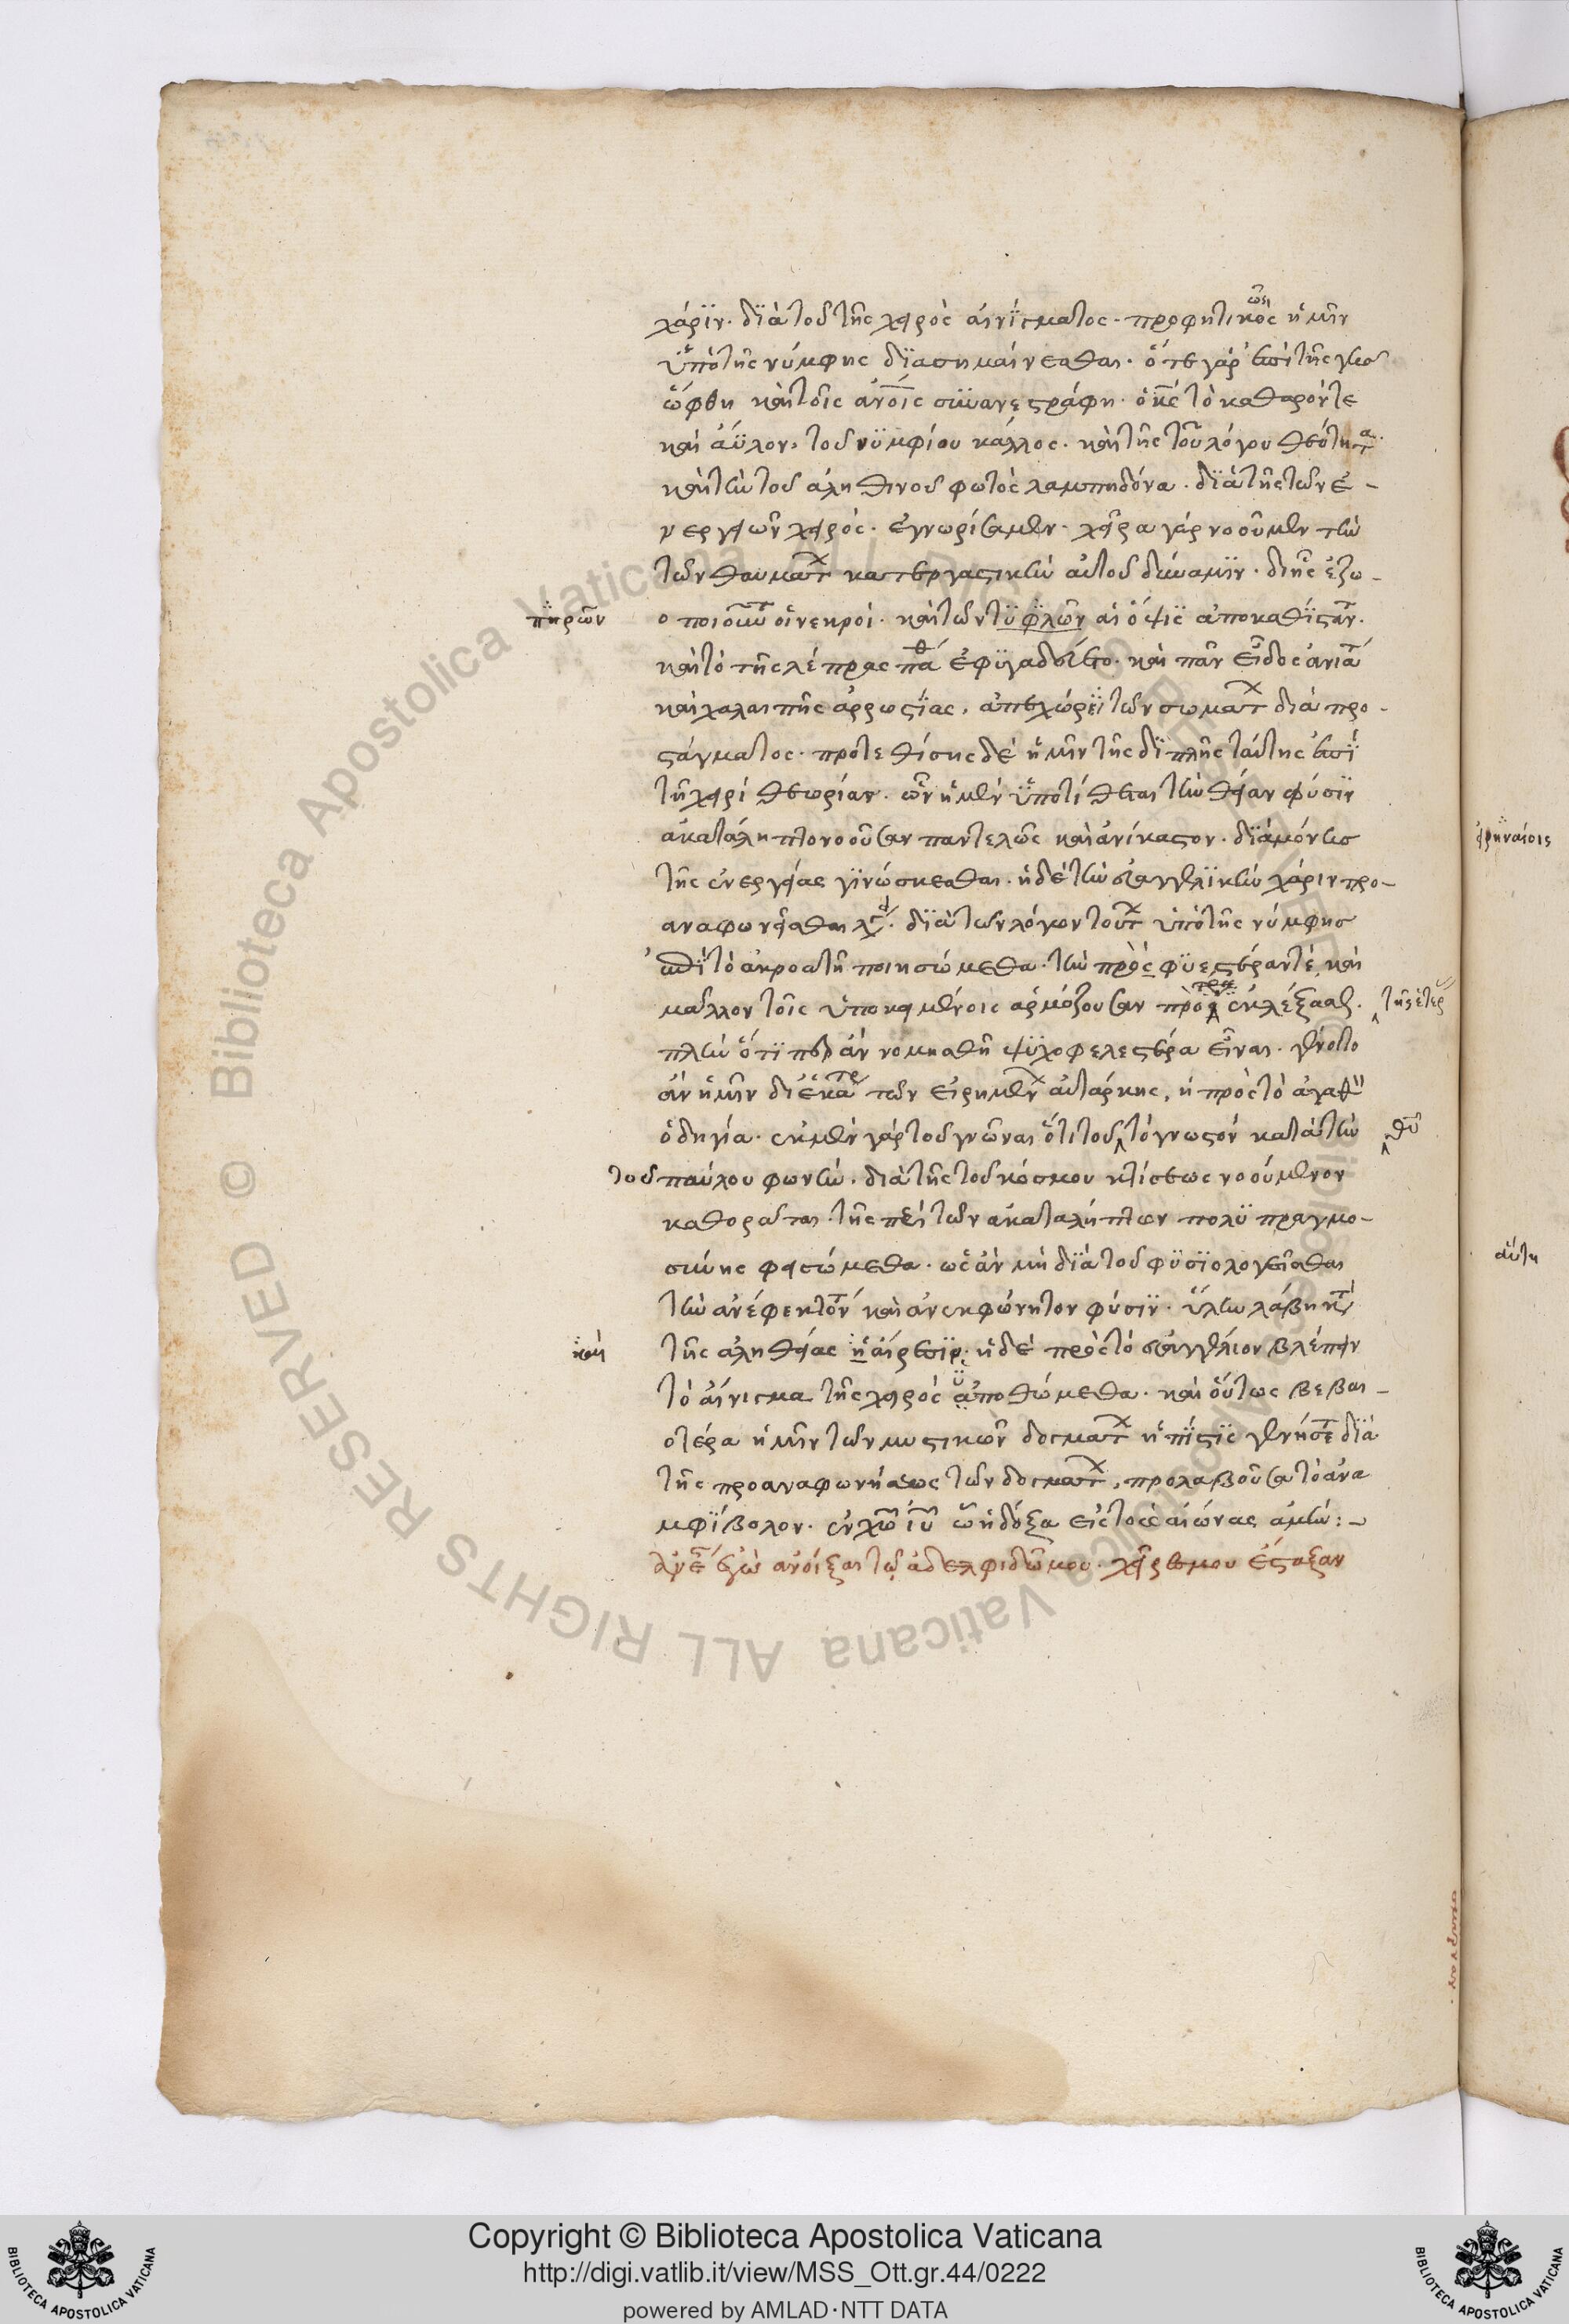 χάριν. διὰ τοῦ τῆς χειρὸς αἰνίγματος. προφητικὸς ἡμῖν
ὑπὸ τῆς νύμφης διασημαίνεσθαι. ὅτε γὰρ ἐπὶ τῆς γῆς
ὤφθη καὶ τοῖς ἀνοις συνανεστράφη. ὁ κς τὸ καθαρόν τε
καὶ ἄϋλον, τοῦ νυμφίου κάλλος. καὶ τῆς τοῦ λόγου θεότητα
καὶ τὴν τοῦ ἀληθινοῦ φωτὸς λαμπηδόνα. διὰ τῆς τῶν ἐ-
νεργειῶν χειρός. ἐγνωρίσαμεν. χεῖρα γὰρ νοοῦμεν τὴν
τῶν θαυμάτ κατεργαστικὴν αὐτοῦ δύναμιν. δι ἧς ἐζω-
πηρῶν
οποιοῦντ οἱ νεκροί. καὶ τῶν τυφλῶν αἱ ὄψις ἀποκαθίσταν.
καὶ τὸ τῆς λέπρας πάθ ἐφυγαδεύετο. καὶ πᾶν εἶδος ἀνιά
καὶ χαλαιπῆς ἀρρωστίας, ἀπεχώρει τῶν σωμάτ διὰ προ-
στάγματος. προτεθίσης δὲ ἡμῖν τῆς διπλῆς ταύτης ἐπὶ
τῇ χειρὶ θεωρίαν. ὧν ἡ μὲν ὑποτίθεται τὴν θείαν φύσιν
ἀκατάληπτον οὖσαν παντελῶς καὶ ἀνίκαστον. διὰ μόνης
τῆς ἐνεργείας γινώσκεσθαι. ἡ δὲ τὴν εὐαγγελικὴν χάριν προ-
αναφωνεῖσθαι λέγ. διὰ τῶν λόγων τούτ ὑπὸ τῆς νύμφης
ἐπὶ τὸ ἀκροατῆ ποιησώμεθα. τὴν προσφυεστέραν τὲ καὶ
μᾶλλον τοῖς ὑποκειμένοις ἁρμόζουσαν πρὸ ἐκλέξασθ. τῆς ἑτέρ
πλὴν ὅτι περ ἂν νομισθῇ ψυχοφελεστέρα εἶναι. γένοιτο
ἂν ἡμῖν δι ἑκατρ τῶν εἰρημέν αὐτάρκης, ἡ πρὸς τὸ ἀγαθ
ὁδηγία. ἐκ μὲν γὰρ τοῦ γνῶναι ὅτι τοῦ τὸ γνωστὸν κατὰ τὴν θῦ
τοῦ παύλου φωνήν. διὰ τῆς τοῦ κόσμου κτίσεως νοούμενον
καθορᾶται. τῆς περὶ τῶν ἀκαταλήπτων πολυπραγμο-
σύνης φεισώμεθα. ὡς ἂν μὴ διὰ τοῦ φυσιολογεῖσθαι
τὴν ἀνέφικτον καὶ ἀνεκφώνητον φύσιν. ὕλην λάβη κτ
καὶ
τῆς ἀληθείας ἡ αἵρεσις. ἡ δὲ πρὸς τὸ εὐαγγέλιον βλέπειν
τὸ αἴνιγμα τῆς χειρὸς ἀποθώμεθα. καὶ οὕτως βεβαι-
οτέρα ἡμῖν τῶν μυστικῶν δογμάτ ἡ πίστις γενήσετ διὰ
τῆς προαναφωνήσεως τῶν δογμάτ, προλαβοῦσα τὸ ἀνα
μφίβολον. ἐν χῶ ἰῦ ὧ ἡ δόξα εἰς τοὺς αἰώνας ἀμήν:-
ἀνέστ ἐγὼ ἀνοίξαι τῷ ἀδελφιδῷ μου. χεῖρες μου ἔσταξαν
αὕτη